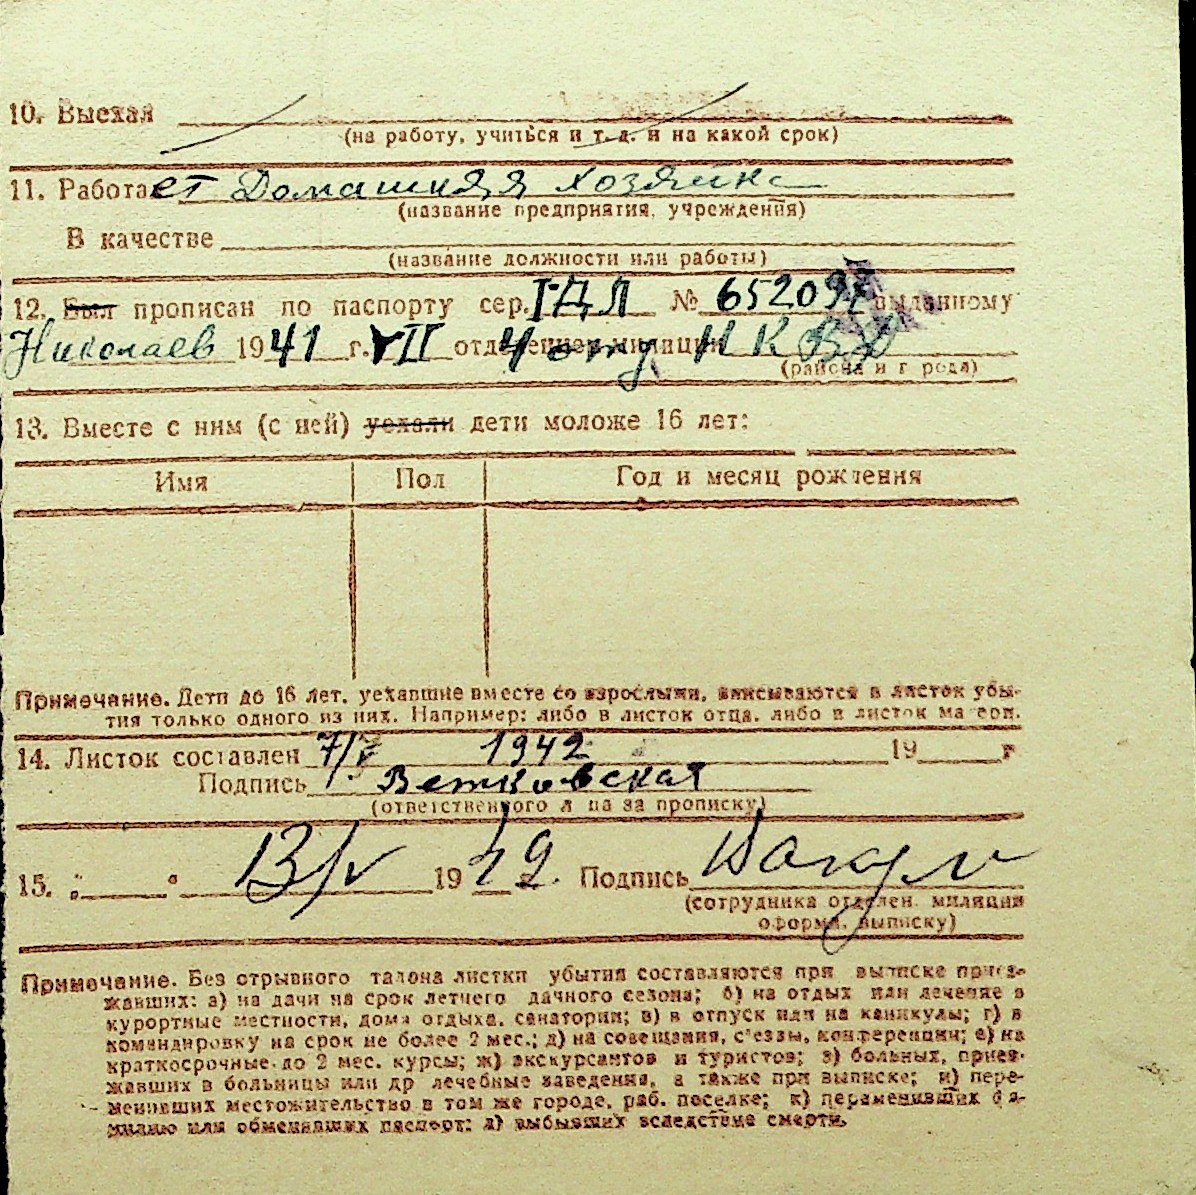 10. Выехал
(на работу, учиться и т. д. и на какой срок)
11. Работает Домашняя хозяйка
(название предприятия, учреждения)
В качестве
(название должности или работы)
12. Был прописан по паспорту сер. ГДЛ № 652097 выданному
Николаев 1941 г. VII отделением милиции 4 отд. НКВД
(района и города)
13. Вместе с ним (с ней) уехали дети моложе 16 лет:
Имя Пол Год и месяц рождения
Примечание. Дети до 16 лет, уехавшие вместе со взрослыми, вписываются в листок убы-
тия только одного из них. Например: либо в листок отца, либо в листок матери.
14. Листок составлен 7/V 1942 19 г
Подпись Ветковская
(ответственного лица за прописку)
15. „ “ 13/V 1942. Подпись
(сотрудника отделен. милиции
оформ. выписку)
Примечание. Без отрывного талона листки убытия составляются при выписке приез-
жавших: а) на дачи на срок летнего дачного сезона; б) на отдых или лечение в
курортные местности, дома отдыха, санатории; в) в отпуск или на каникулы; г) в
командировку на срок не более 2 мес.; д) на совещания, с'езды, конференции; е) на
краткосрочные до 2 мес. курсы; ж) экскурсантов и туристов; з) больных, приез-
жавших в больницы или др лечебные заведения, а также при выписке; и) пере-
менивших местожительство в том же городе, раб. поселке; к) переменивших фа-
милию или обменявших паспорт; л) выбывших вследствие смерти.